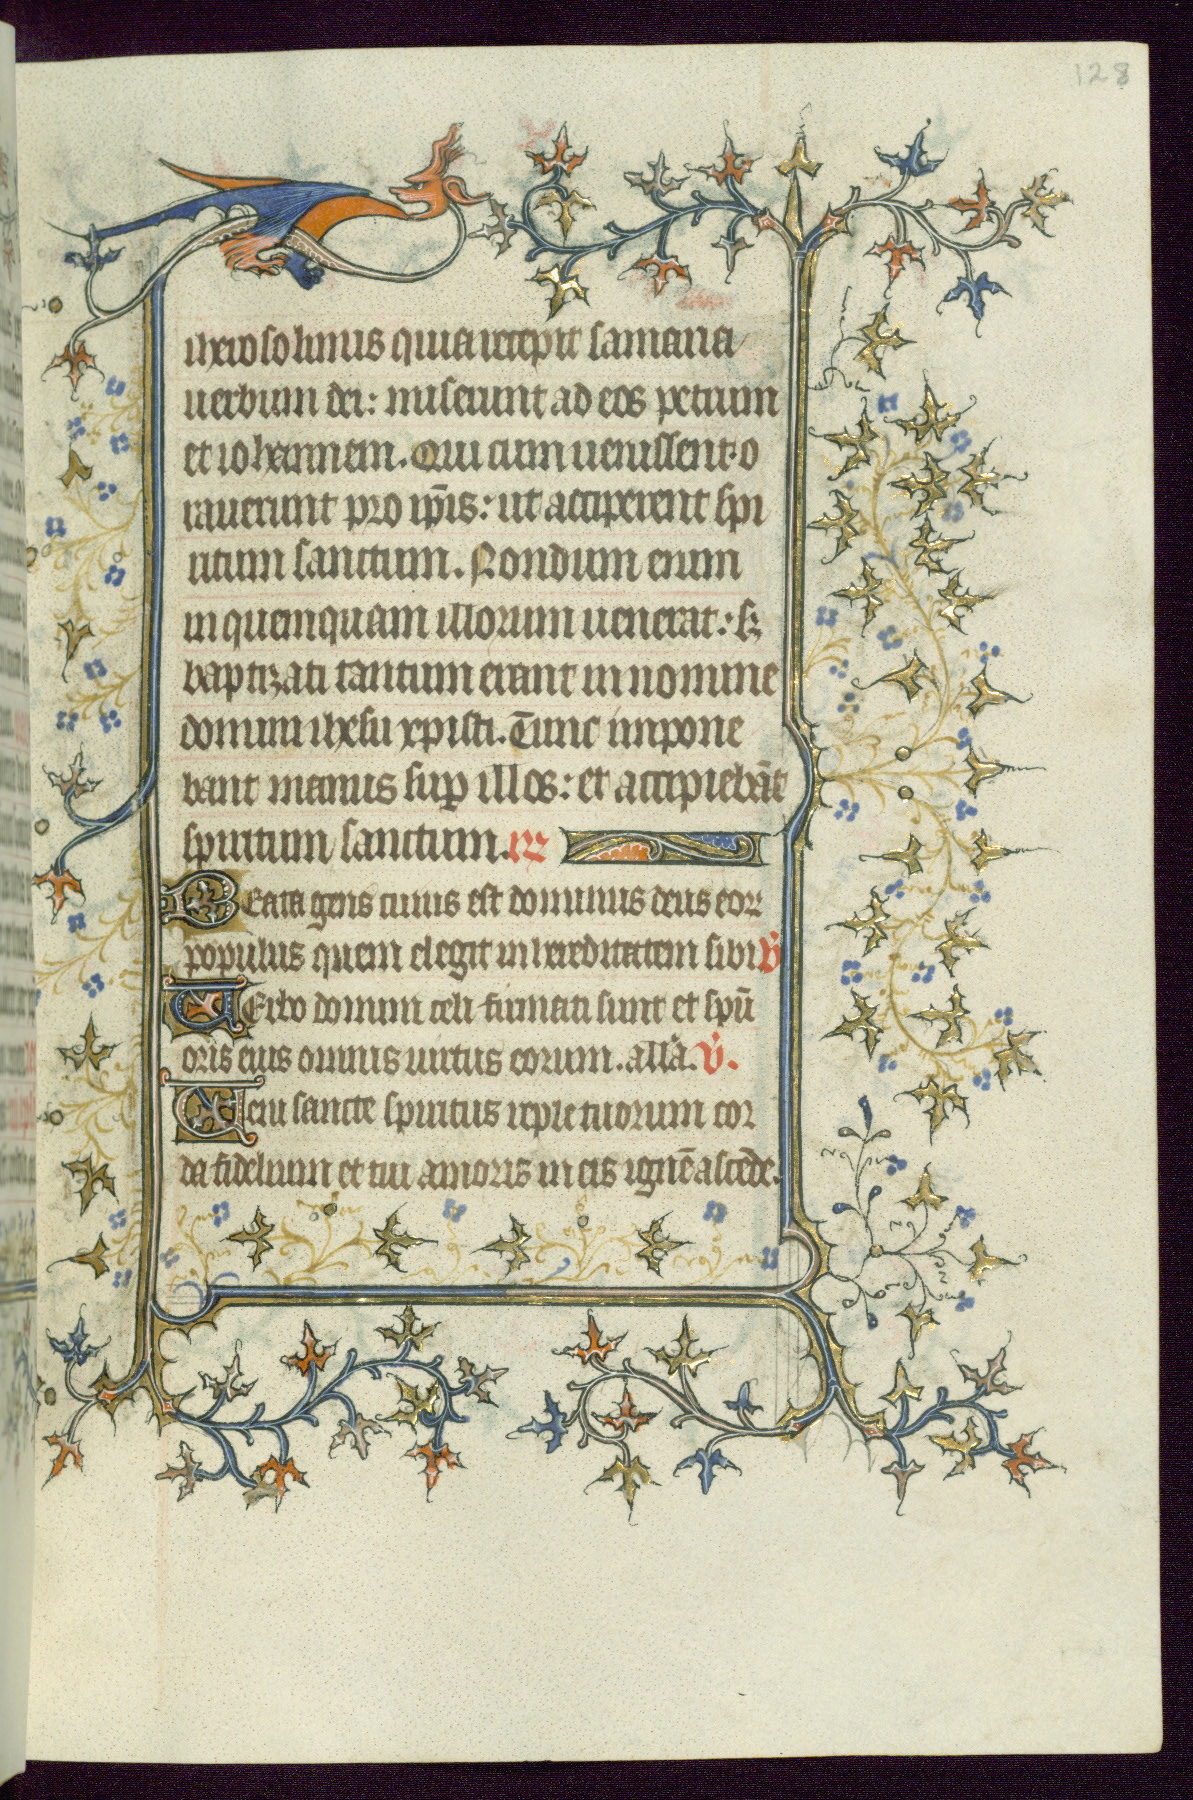 128
iherosolimis quia recepit samaria
uerbum dei: miserunt ad eos petrum
et iohannem. Qui cum uenissent o
rauerunt pro ip̄is: ut acciperent spi
ritum sanctum. Nondum enim
in quemquam illorum uenerat: sꝫ
baptizati tantum erant in nomine
domini ihesu xpisti. Tunc impone
bant manus suꝑ illos: et accipiebāt
spiritum sanctum. R
Beata gens cuius est dominus deus eoꝝ
populus quem elegit in hereditatem sibi v̇
UErbo domini celi firmati sunt et spū
oris eius omnis uirtus eorum. all'a. v̇.
Ueni sancte spiritus reple tuorum cor
da fidelium et tui amoris in eis ignē ascēde.